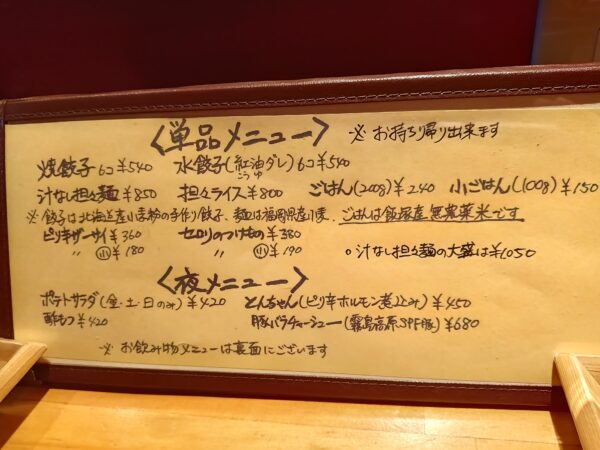 〈単品メニュー〉 ※お持ち帰り出来ます
焼餃子 6コ ¥540 水餃子(紅油ダレ) 6コ ¥540
こうゆ
汁なし担々麺 ¥850 担々ライス ¥800 ごはん(200g) ¥240 小ごはん(100g) ¥150
※餃子は北海道産小麦粉の手作り餃子、麺は福岡県産小麦、ごはんは飯塚産無農薬米です
ピリ辛ザーサイ ¥360 セロリのつけもの ¥380
〃 小 ¥180 〃 小 ¥190 ○汁なし担々麺の大盛は¥1050
〈夜メニュー〉
ポテトサラダ(金・土・日のみ) ¥420 とんちゃん(ピリ辛ホルモン煮込み) ¥450
酢もつ ¥420 豚バラチャーシュー(霧島高原SPF豚) ¥680
※お飲み物メニューは裏面にございます